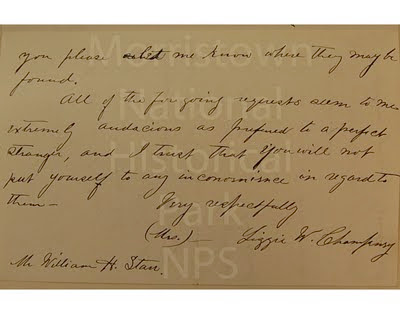 you please let me know where they may be
found.
All of the forgoing requests seem to me
extremely audacious as prefered to a perfect
stranger, and I trust that you will not
put yourself to any inconvinience in regard to
them —
Very respectfully
(Mrs.) Lizzie W. Champney
Mr William H. Starr.
Morristown
National
Historical
Park
NPS